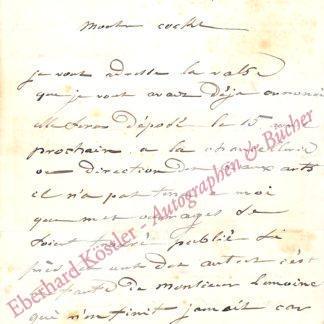 je vous adresse la valse
que je vous avais déja annoncé
déposé le 15
prochain a la chancellerie
ou direction des beaux arts
il n'a pas tenu a moi
que mes ouvrages se
soient publié si
près un des autres c'est
de monsieur Lemoine
qui n'en finit jamais car
Eberhard Köstler - Autographen & Bücher